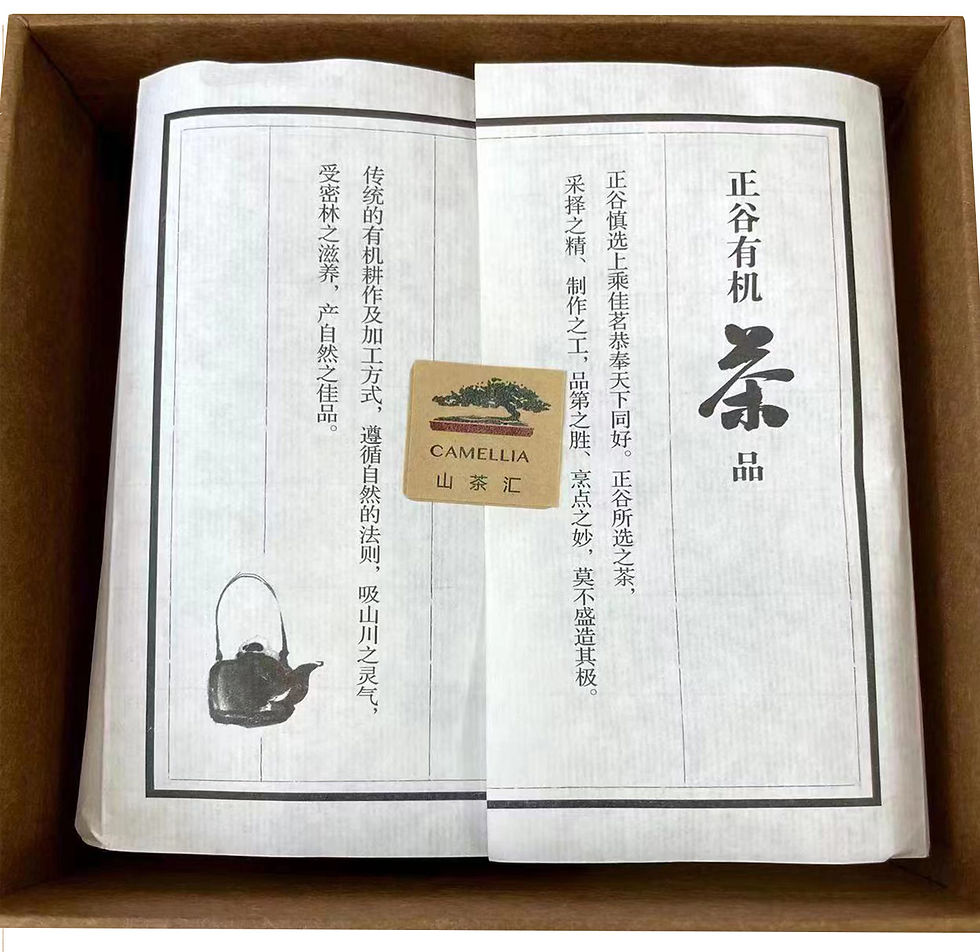 正谷有机
茶
品
正谷慎选上乘佳茗恭奉天下同好。正谷所选之茶，
采择之精、制作之工，品第之胜、烹点之妙，莫不盛造其极。
传统的有机耕作及加工方式，遵循自然的法则，吸山川之灵气，
受密林之滋养，产自然之佳品。
CAMELLIA
山茶汇